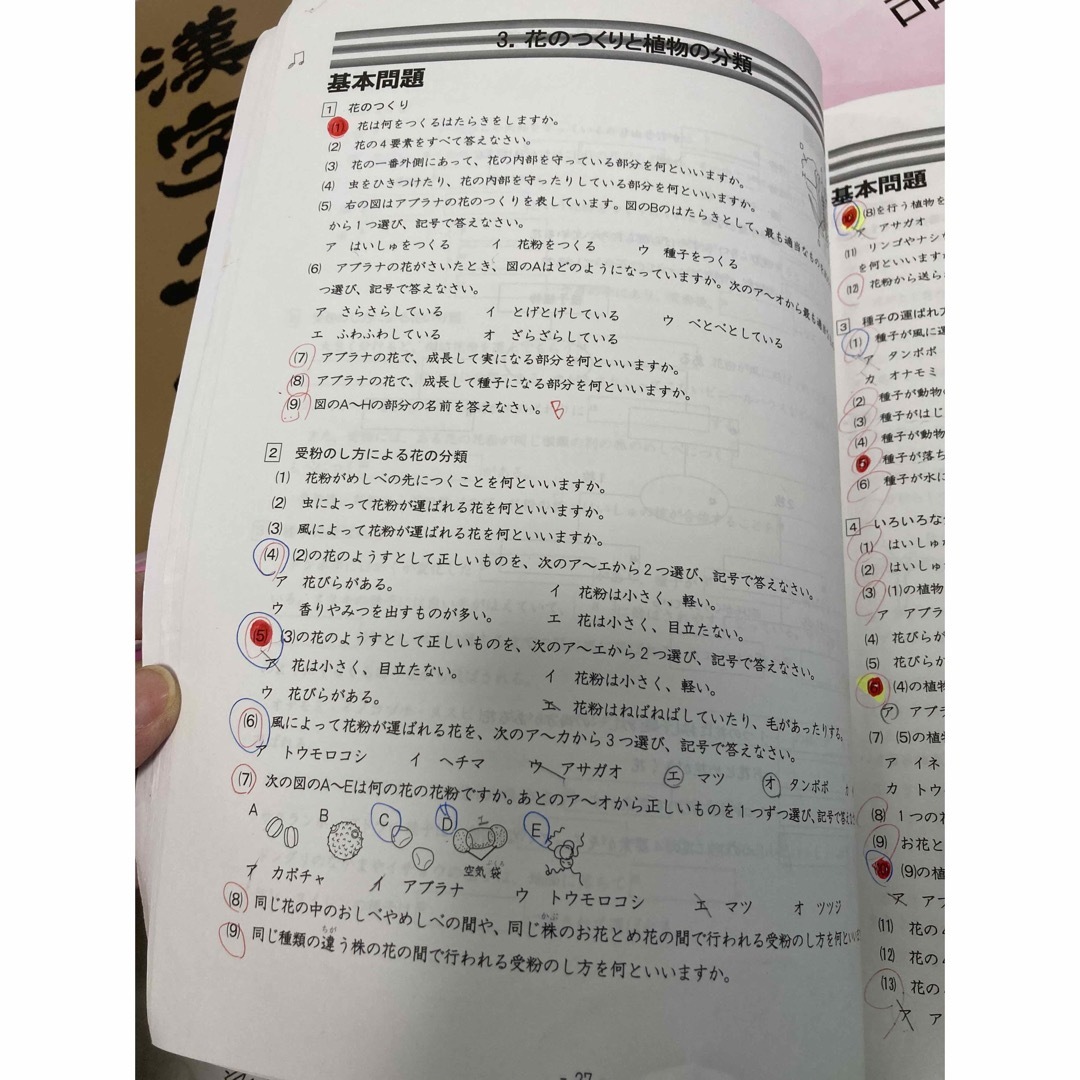 漢字
3. 花のつくりと植物の分類
基本問題
1 花のつくり
(1) 花は何をつくるはたらきをしますか。
(2) 花の4要素をすべて答えなさい。
(3) 花の一番外側にあって、花の内部を守っている部分を何といいますか。
(4) 虫をひきつけたり、花の内部を守ったりしている部分を何といいますか。
(5) 右の図はアブラナの花のつくりを表しています。図のBのはたらきとして、最も適当なものを
から1つ選び、記号で答えなさい。
ア はいしゅをつくる イ 花粉をつくる ウ 種子をつくる
(6) アブラナの花がさいたとき、図のAはどのようになっていますか。次のア～オから最も適
つ選び、記号で答えなさい。
ア さらさらしている イ とげとげしている ウ べとべとしている
エ ふわふわしている オ ざらざらしている
(7) アブラナの花で、成長して実になる部分を何といいますか。
(8) アブラナの花で、成長して種子になる部分を何といいますか。
(9) 図のA～Hの部分の名前を答えなさい。B
2 受粉のし方による花の分類
(1) 花粉がめしべの先につくことを何といいますか。
(2) 虫によって花粉が運ばれる花を何といいますか。
(3) 風によって花粉が運ばれる花を何といいますか。
(4) (2)の花のようすとして正しいものを、次のア～エから2つ選び、記号で答えなさい。
ア 花びらがある。 イ 花粉は小さく、軽い。
ウ 香りやみつを出すものが多い。 エ 花は小さく、目立たない。
(5) (3)の花のようすとして正しいものを、次のア～エから2つ選び、記号で答えなさい。
ア 花は小さく、目立たない。 イ 花粉は小さく、軽い。
ウ 花びらがある。 エ 花粉はねばねばしていたり、毛があったりする。
(6) 風によって花粉が運ばれる花を、次のア～カから3つ選び、記号で答えなさい。
ア トウモロコシ イ ヘチマ ウ アサガオ エ マツ オ タンポポ
(7) 次の図のA～Eは何の花の花粉ですか。あとのア～オから正しいものを1つずつ選び、記号で答え
A B C D E
空気袋
ア カボチャ イ アブラナ ウ トウモロコシ エ マツ オ ツツジ
(8) 同じ花の中のおしべやめしべの間や、同じ株のお花とめ花の間で行われる受粉のし方を何とい
(9) 同じ種類の違う株の花の間で行われる受粉のし方を何といいますか。
27
基本問題
(8)を行う植物を
ア アサガオ
(11) リンゴやナシ
を何といいます
(12) 花粉から送ら
3 種子の運ばれ方
(1) 種子が風に運
ア タンポポ
カ オナモミ
(2) 種子が動物
(3) 種子がはじ
(4) 種子が動物
種子が落ち
(6) 種子が水に
4 いろいろな
(1) はいしゅ
(2) はいしゅ
(3) (1)の植物
ア アブラ
(4) 花びらが
(5) 花びらが
(4)の植物
ア アブラ
(7) (5)の植物
ア イネ
カ トウ
(8) 1つの花
(9) お花と
(9)の植
ア アブ
(11) 花の
(12) 花の
(13) 花の
ア ア